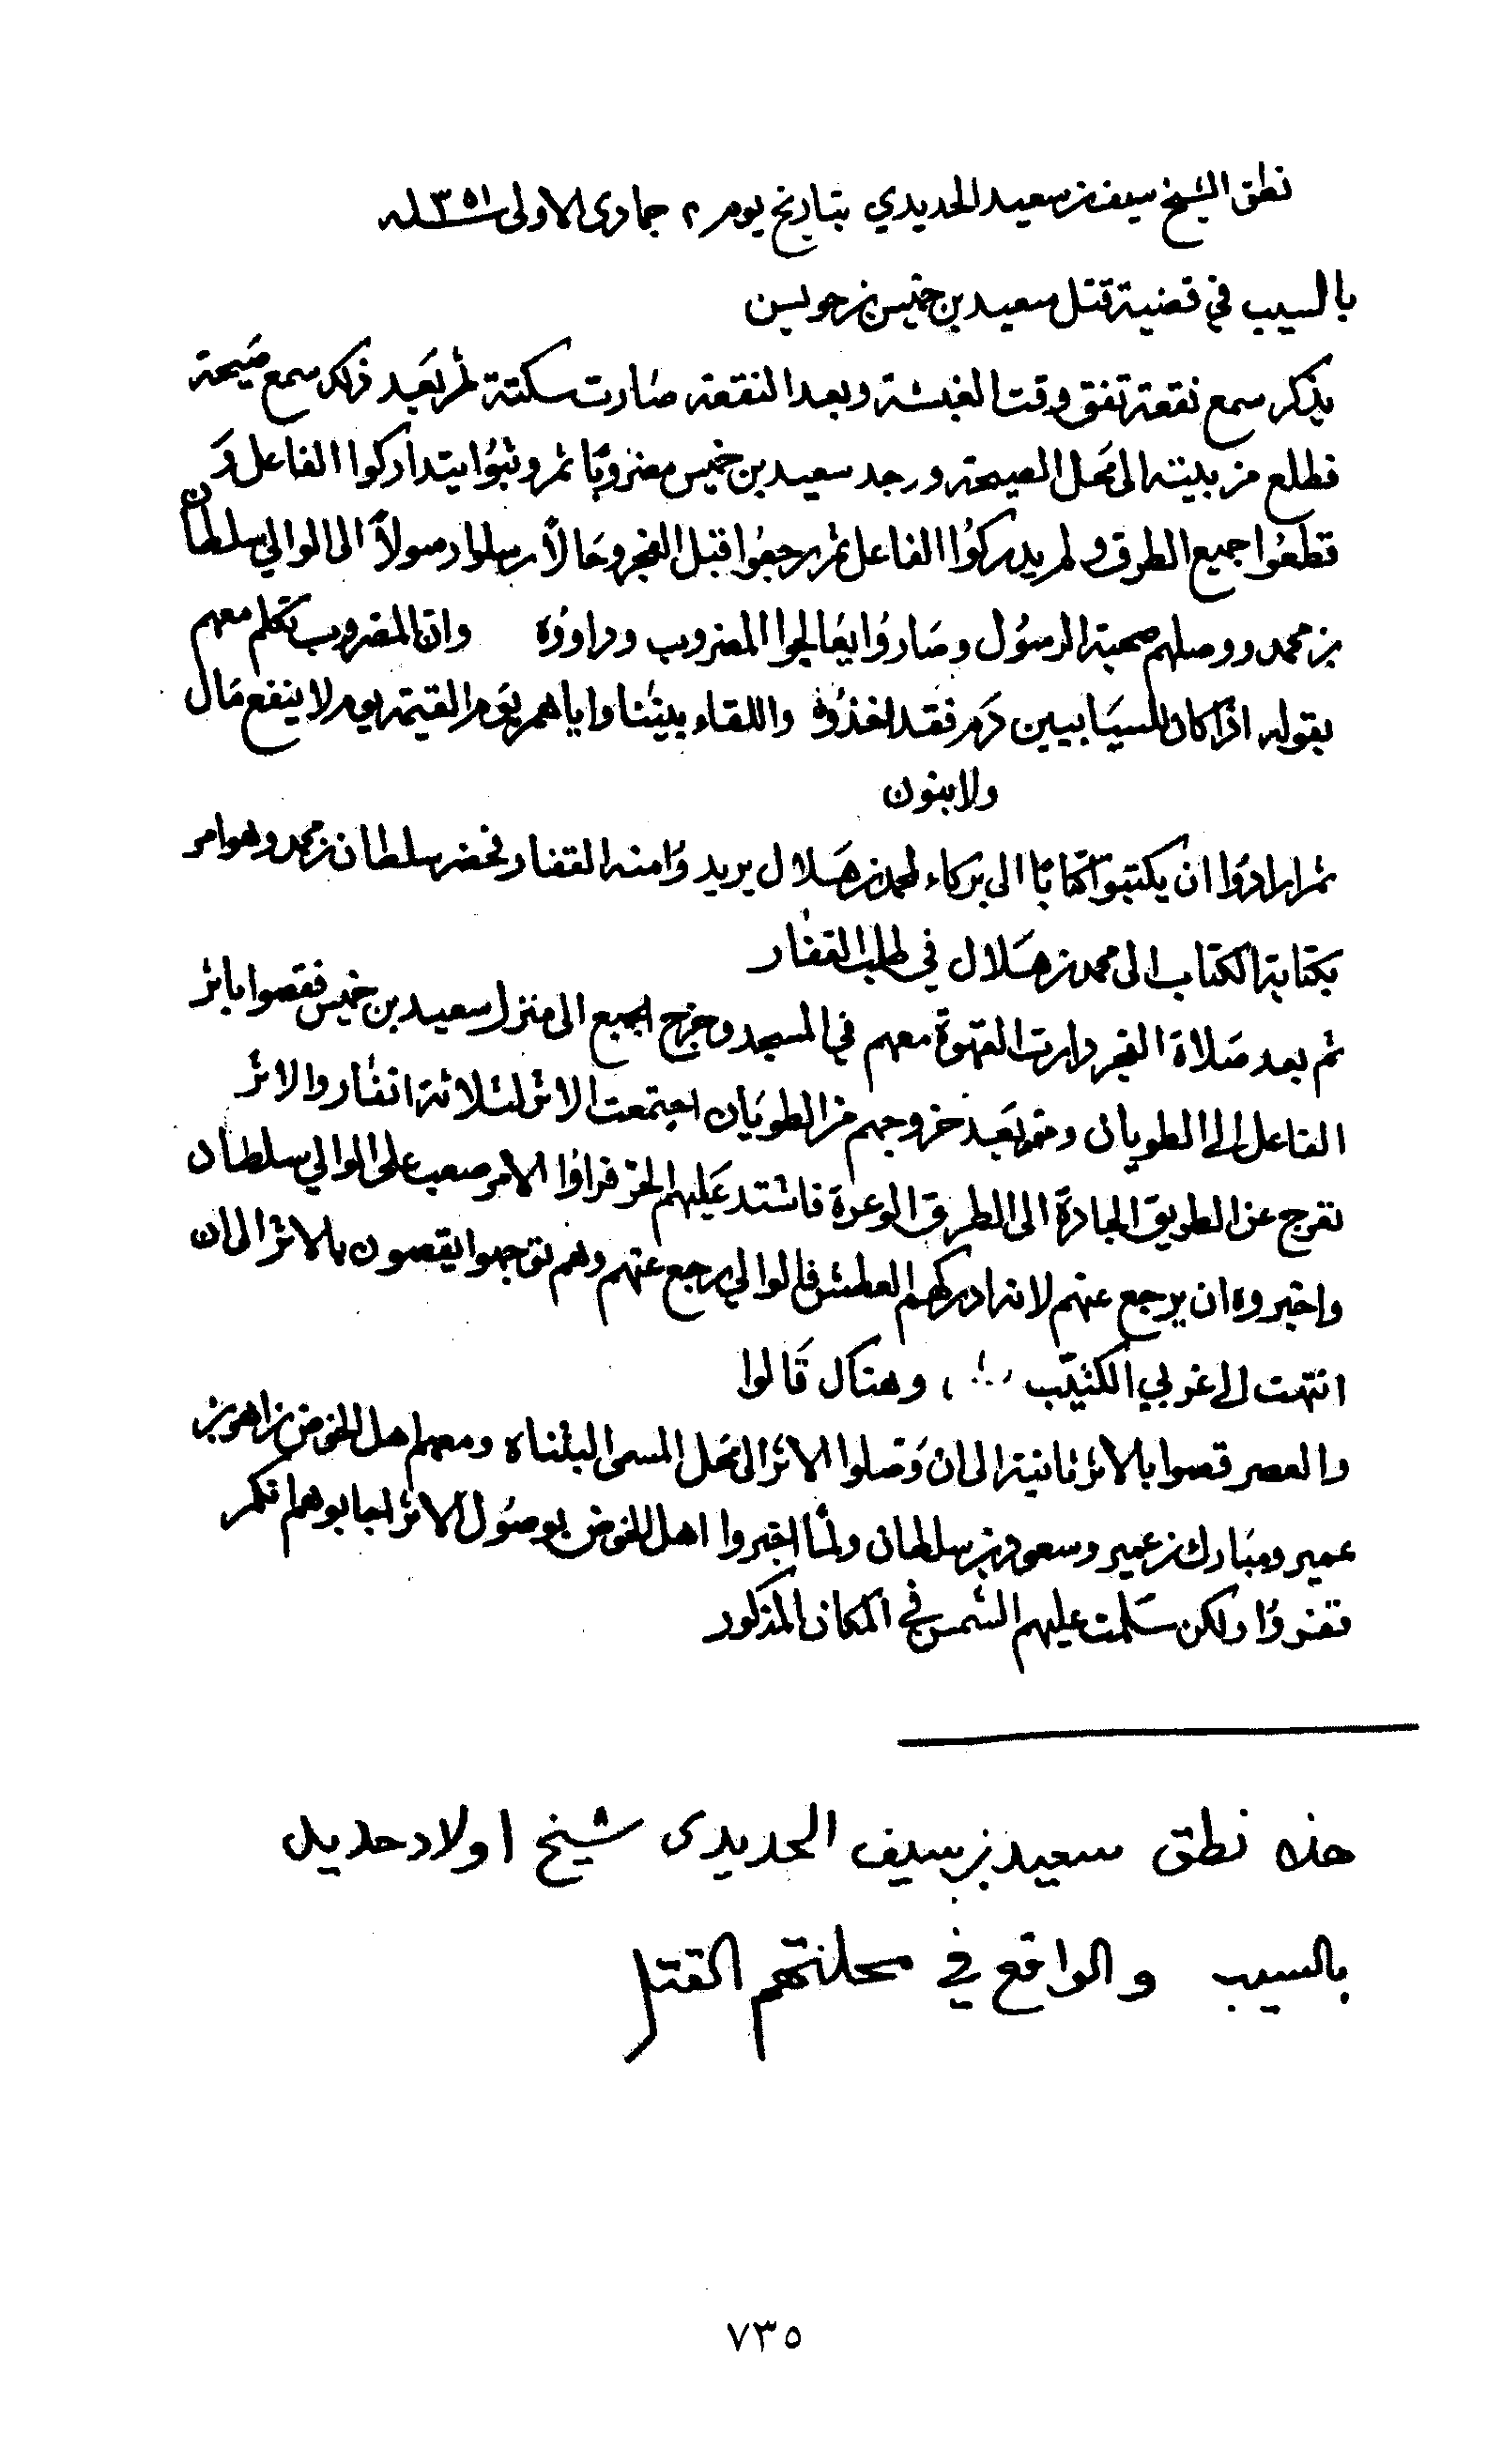 نطق الشيخ سيف بن سعيد الحديدي بتاريخ يوم ٢ جمادى الاولى سنة ١٣٥١
بالسيب في قضية قتل سعيد بن خميس بن حويسن
يذكر سمع نقعة تفق وقت الغبشة وبعد النقعة صارت سكتة ثم بعد ذلك سمع صيحة
فطلع من بيته الى محل الصيحة ووجد سعيد بن خميس مضروبًا ثم وثبوا يتداركوا الفاعل و
قطعوا جميع الطرق ولم يدركوا الفاعل ثم رجعوا قبل الفجر وحالاً ارسلوا رسولاً الى الوالي سلطان
بن محمد ووصلهم صحبة الرسول وصاروا يعالجوا المضروب وداووه وان المضروب تكلم معهم
بقوله اذا كان للسيابيين دم فقد اخذوه واللقاء بيننا واياهم يوم القيمة يوم لا ينفع مال
ولا بنون
ثم ارادوا ان يكتبوا كتابًا الى بركاء لمحمد بن هلال يريدوا منه القفار فحضر سلطان بن محمد وهو امر
بكتابة الكتاب الى محمد بن هلال في طلب القفار
ثم بعد صلاة الفجر دارت القهوة معهم في المسجد وخرج الجميع الى منزل سعيد بن خميس فقصوا باثر
الفاعل الى الطويان ومن بعد خروجهم من الطويان اجتمعت الاثر لثلاثة انفار والاثر
تفرج عن الطريق الجادة الى الطرق الوعرة فاشتد عليهم الحر فراوا الامر صعب على الوالي سلطان
واخبروه ان يرجع عنهم لانه ادركهم العطش فالوالي رجع عنهم وهم توجهوا يقصون بالاثر الى ان
انتهت الى غربي الكثيب ، وهناك قالوا
والعصر قصوا بالاثر ثانية الى ان وصلوا الاثر الى محل المسمى البثناه ومعهم اهل الخوض زاهر بن
عمير ومبارك بن عمير وسعود بن سلطان ولما اخبروا اهل الخوض بوصول الاثر اجابوهم انكم
تقفروا ولكن سلمت عليهم الشمس في المكان المذكور
هذه نطق سعيد بن سيف الحديدي شيخ اولاد حديد
بالسيب والواقع في محلتهم القتل
٧٣٥